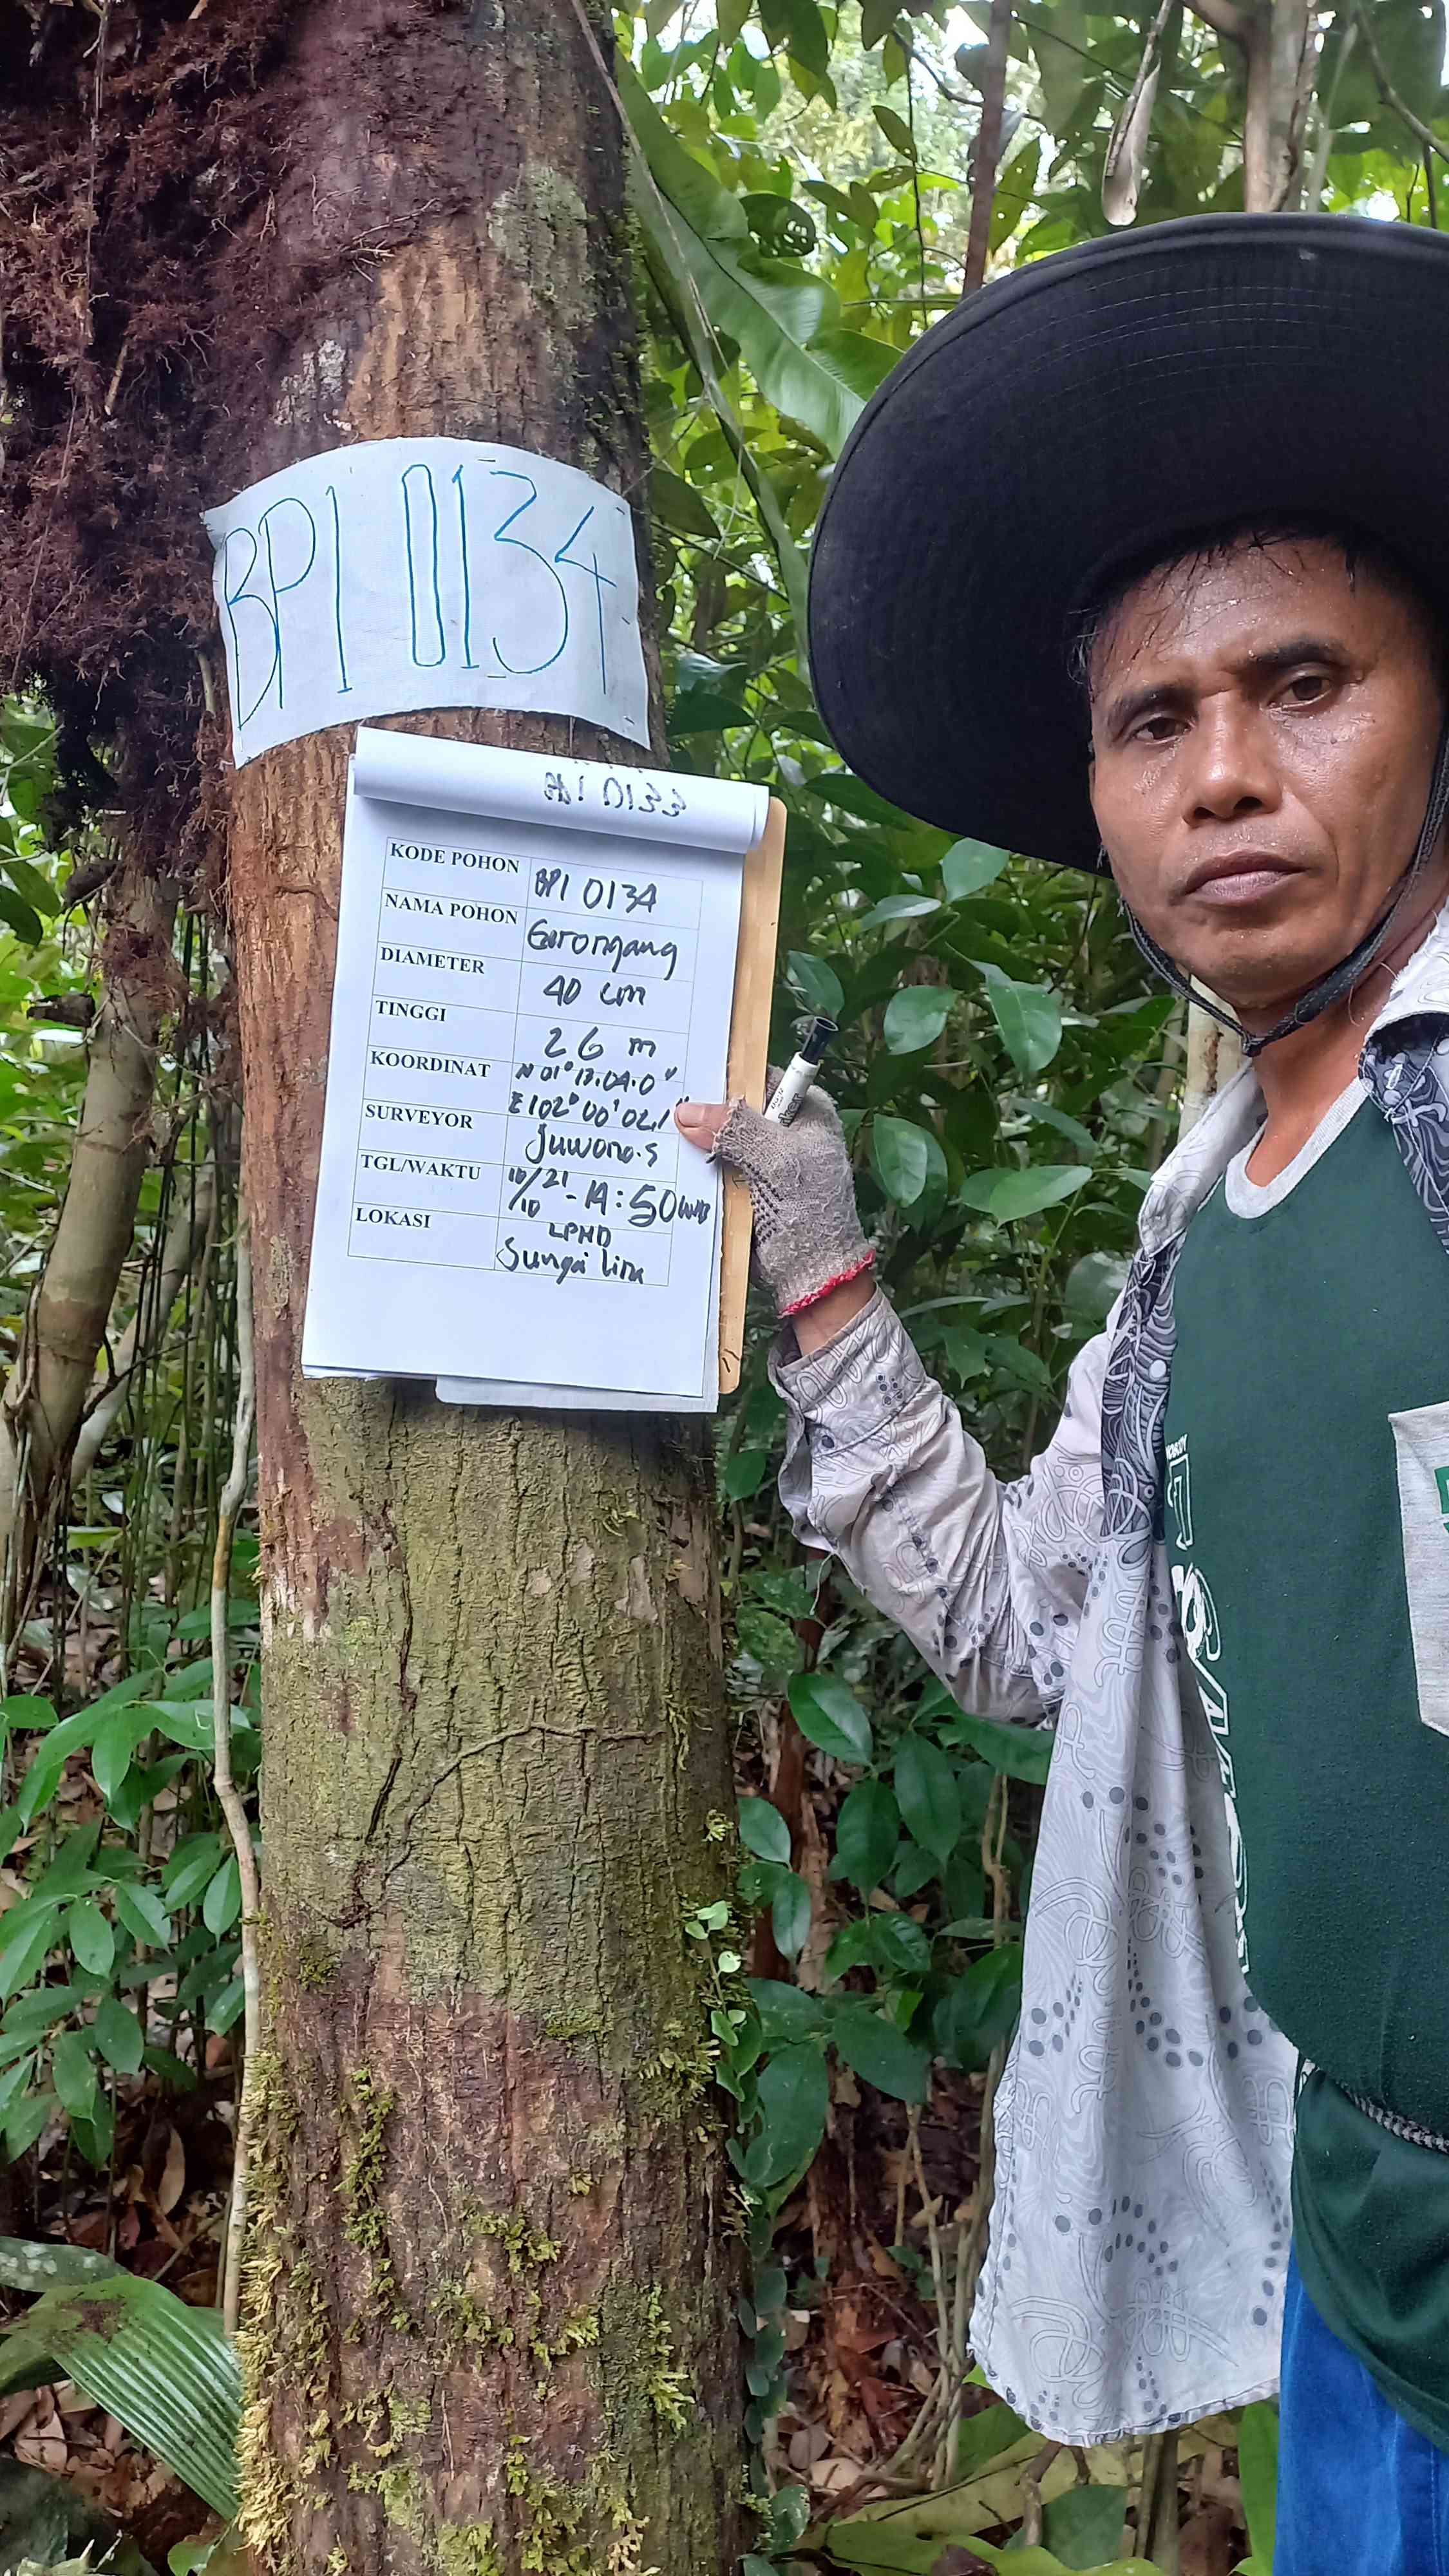 BPI 0134
KODE POHON BPI 0134
NAMA POHON Gorongang
DIAMETER 40 cm
TINGGI 26 m
KOORDINAT N 01° 13.04.0"
E 102° 00' 02.1"
SURVEYOR Juwono.S
TGL/WAKTU 16/10/21 - 14:50 WIB
LOKASI LPHD
Sungai Liru